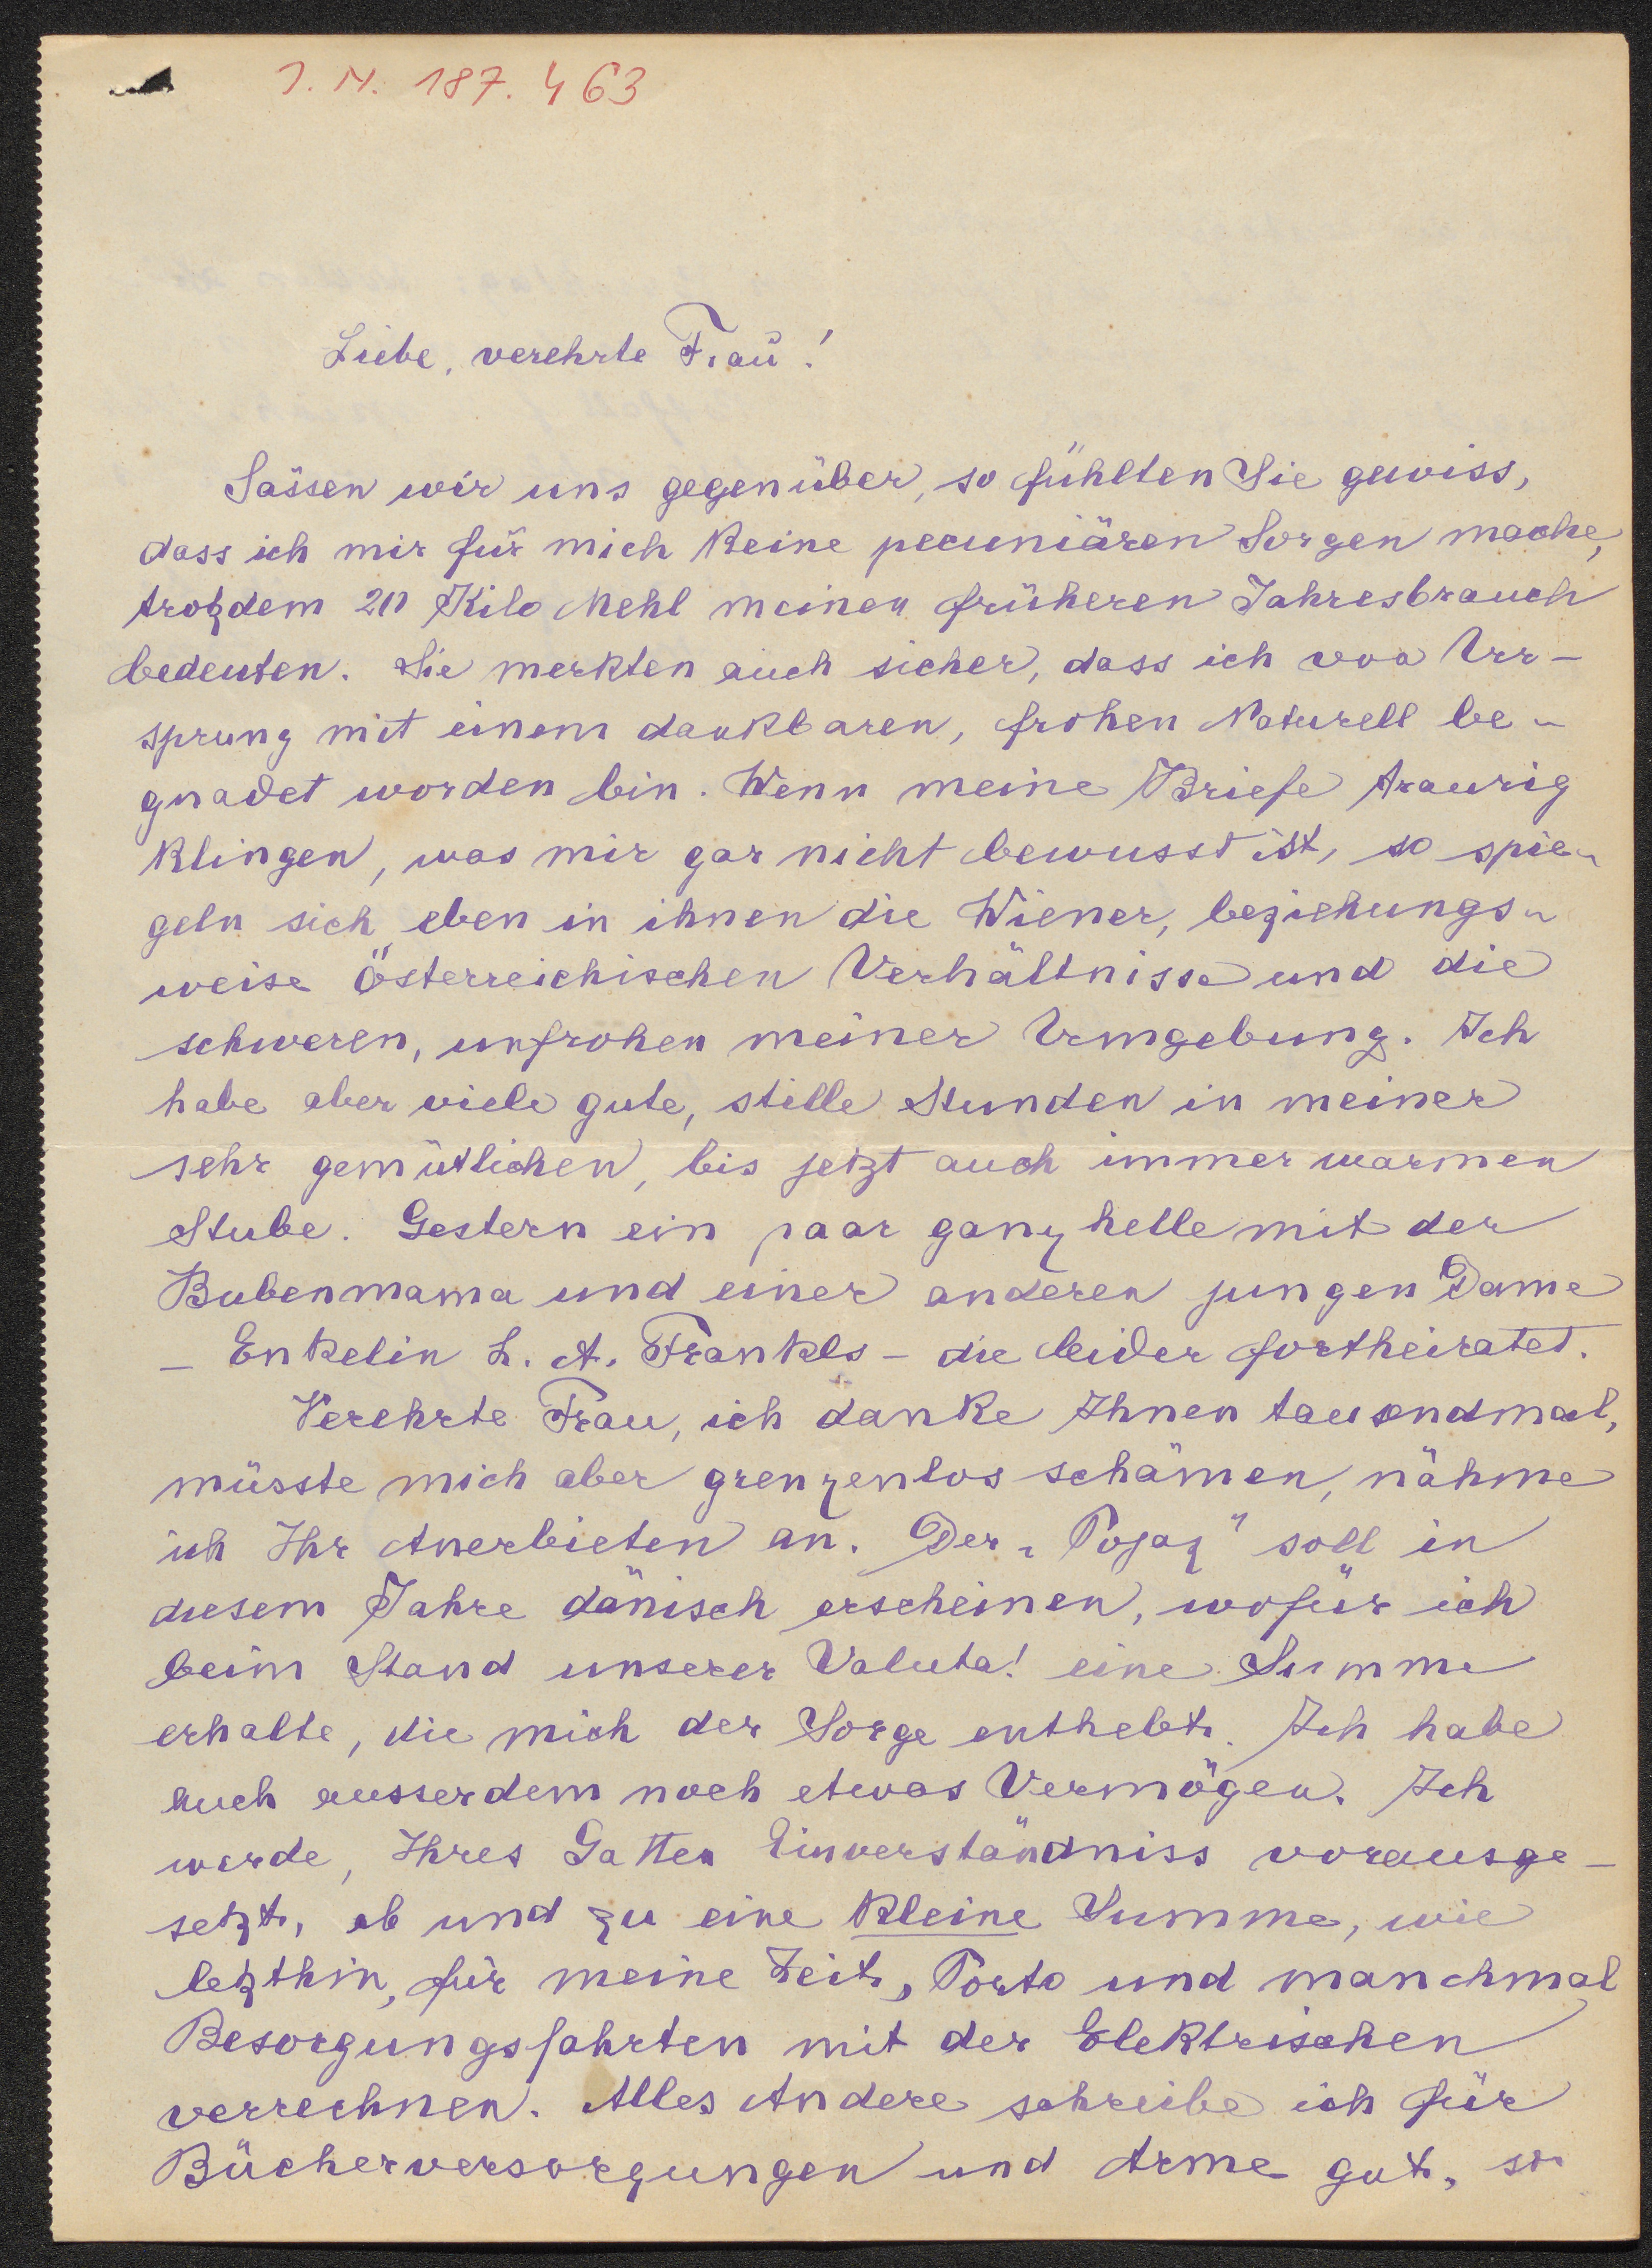 I. N. 187.463
Liebe, verehrte Frau!
Sässen wir uns gegenüber, so fühlten Sie gewiss,
dass ich mir für mich keine pecuniären Sorgen mache,
trotzdem 20 Kilo Mehl meinen früheren Jahresbrauch
bedeuten. Sie merkten auch sicher, dass ich von Ur-
sprung mit einem dankbaren, frohen Naturell be-
gnadet worden bin. Wenn meine Briefe traurig
klingen, was mir gar nicht bewusst ist, so spie-
geln sich eben in ihnen die Wiener, beziehungs-
weise Österreichischen Verhältnisse und die
schweren, unfrohen meiner Umgebung. Ich
habe aber viele gute, stille Stunden in meiner
sehr gemütlichen, bis jetzt auch immer warmen
Stube. Gestern ein paar ganz helle mit der
Bubenmama und einer anderen jungen Dame
- Enkelin L. A. Frankls - die leider fortheiratet.
Verehrte Frau, ich danke Ihnen tausendmal,
müsste mich aber grenzenlos schämen, nähme
ich Ihr Anerbieten an. Der „Pojaz" soll in
diesem Jahre dänisch erscheinen, wofür ich
beim Stand unserer Valuta! eine Summe
erhalte, die mich der Sorge enthebt. Ich habe
auch ausserdem noch etwas Vermögen. Ich
werde, Ihres Gatten Einverständniss vorausge-
setzt, ab und zu eine kleine Summe, wie
letzthin, für meine Zeit, Porto und manchmal
Besorgungsfahrten mit der Elektrischen
verrechnen. Alles Andere schreibe ich für
Bücherversorgungen und Arme gut, so